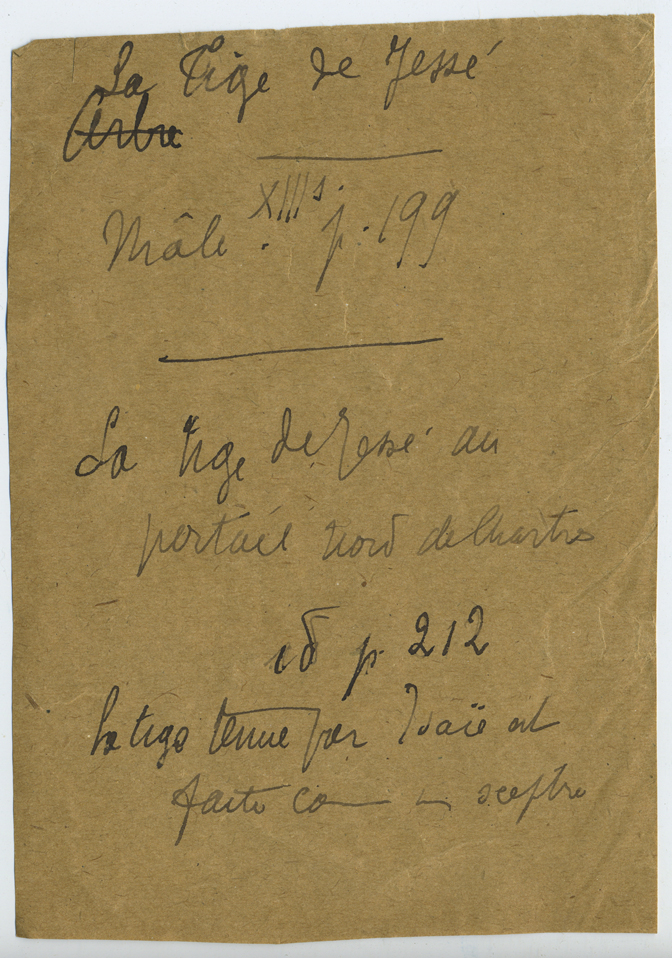 La Tige de Jessé
Arbre
Mâle XIII s. p. 199
La tige de Jessé au
portail nord de Chartres
id p. 212
la tige tenue par Isaïe est
faite co— un sceptre